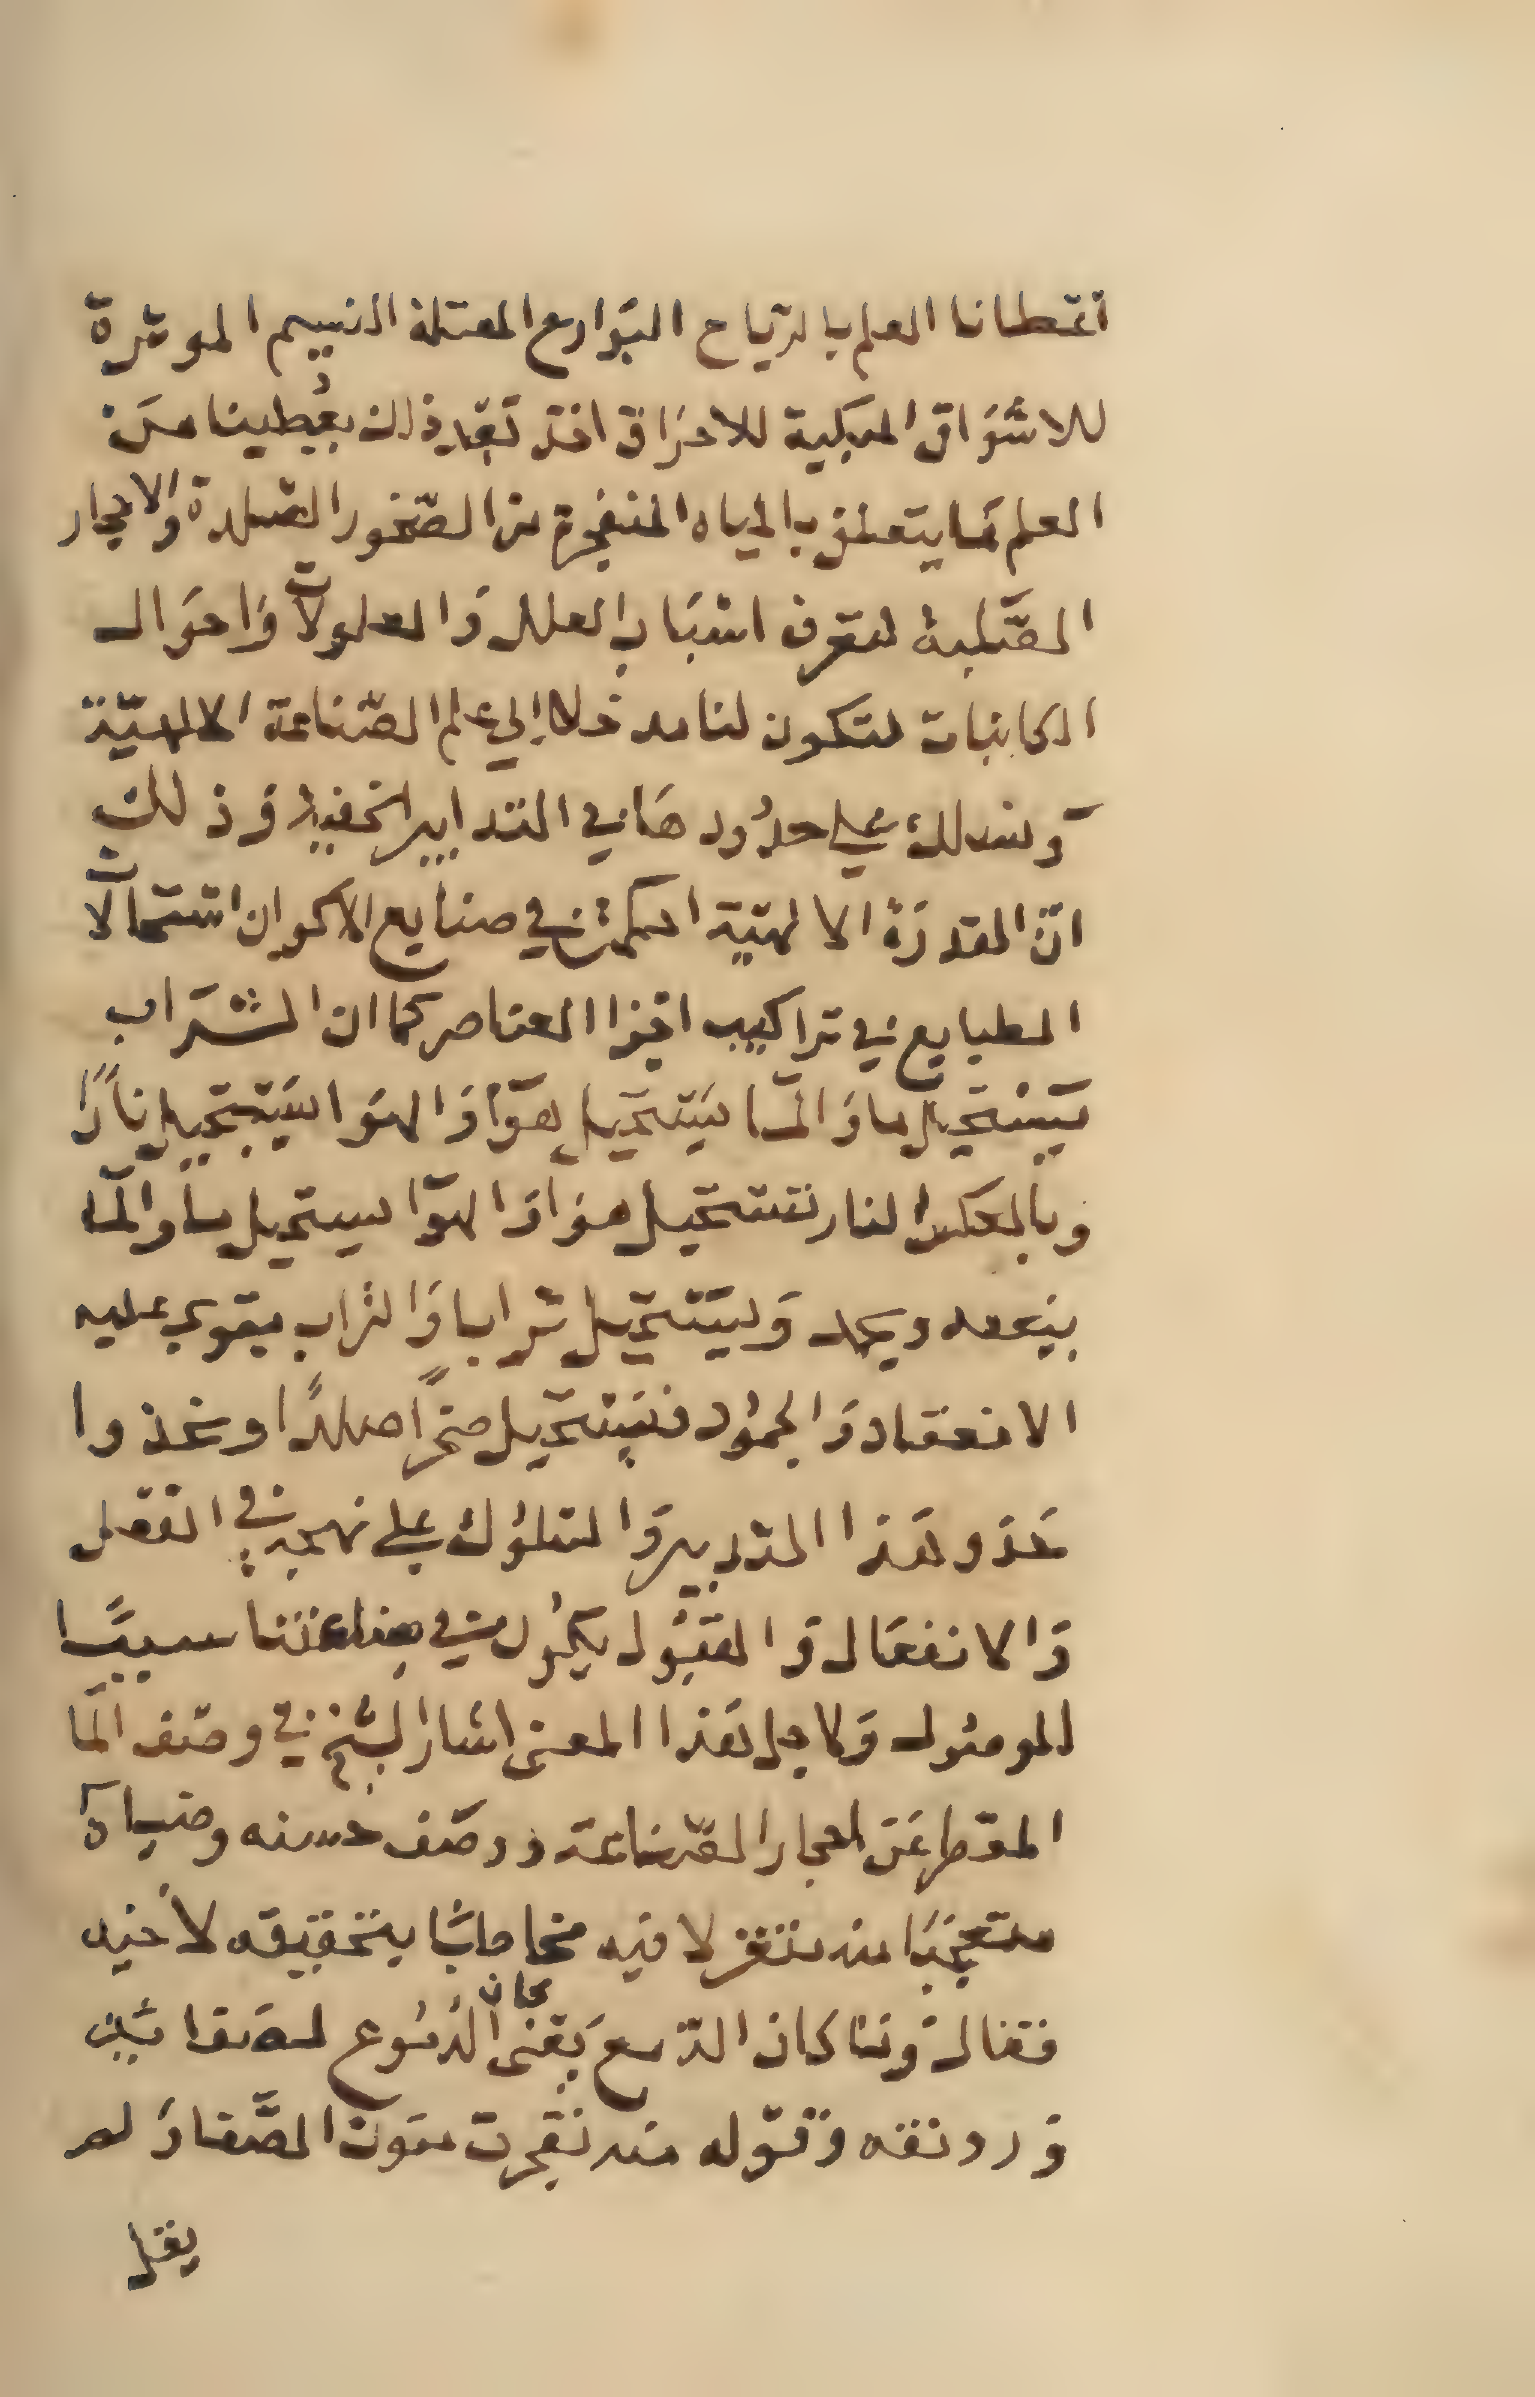 اعطانا العلم بالرياح البوارع المعتلة النسيم الموثرة
للاشواق المبكية للاحزاق اخذ بعد ذلك يعطينا من
العلم ما يتعلق بالمياه المنفجرة من الصخور الصلدة والاحجار
الصلبة لنعرف اسباب العلل والمعلولات واحوال
الكاينات لتكون لنا مدخلا إلي علم الصناعة الالهية
ونسلك علي حدودها في التدابير الخفية وذلك
انّ القدرة الالهية احكمت في صنايع الاكوان استحالات
الطبايع في تراكيب اجزا العناصر كما ان الشراب
يستحيل ما والما يستحيل هوا والهوا يستحيل نارًا
وبالعكس النار تستحيل هوا والهوا يستحيل ما والما
ينعقد ويجمد ويستحيل ترابا والتراب يقوي عليه
الانعقاد والجمود فيستحيل صخرًا صلدًا ونحذوا
حذو هذا التدبير والسلوك علي نهجه في الفصل
والانفعال والقبول يكون في صناعتنا سببًا
الموصول ولاجل هذا المعنى اشار الشيخ في وصف الما
القطر عن احجار الصناعة ووصف حسنه وضياه
متعجبًا منه متغزلا فيه مخاطبًا بتحقيقه لأخيه
فقال وما كان الدمع يفنى الدموع كان لصفايين
ورونقه وقوله منه تفجرت عيون الصفا ولم
يقل